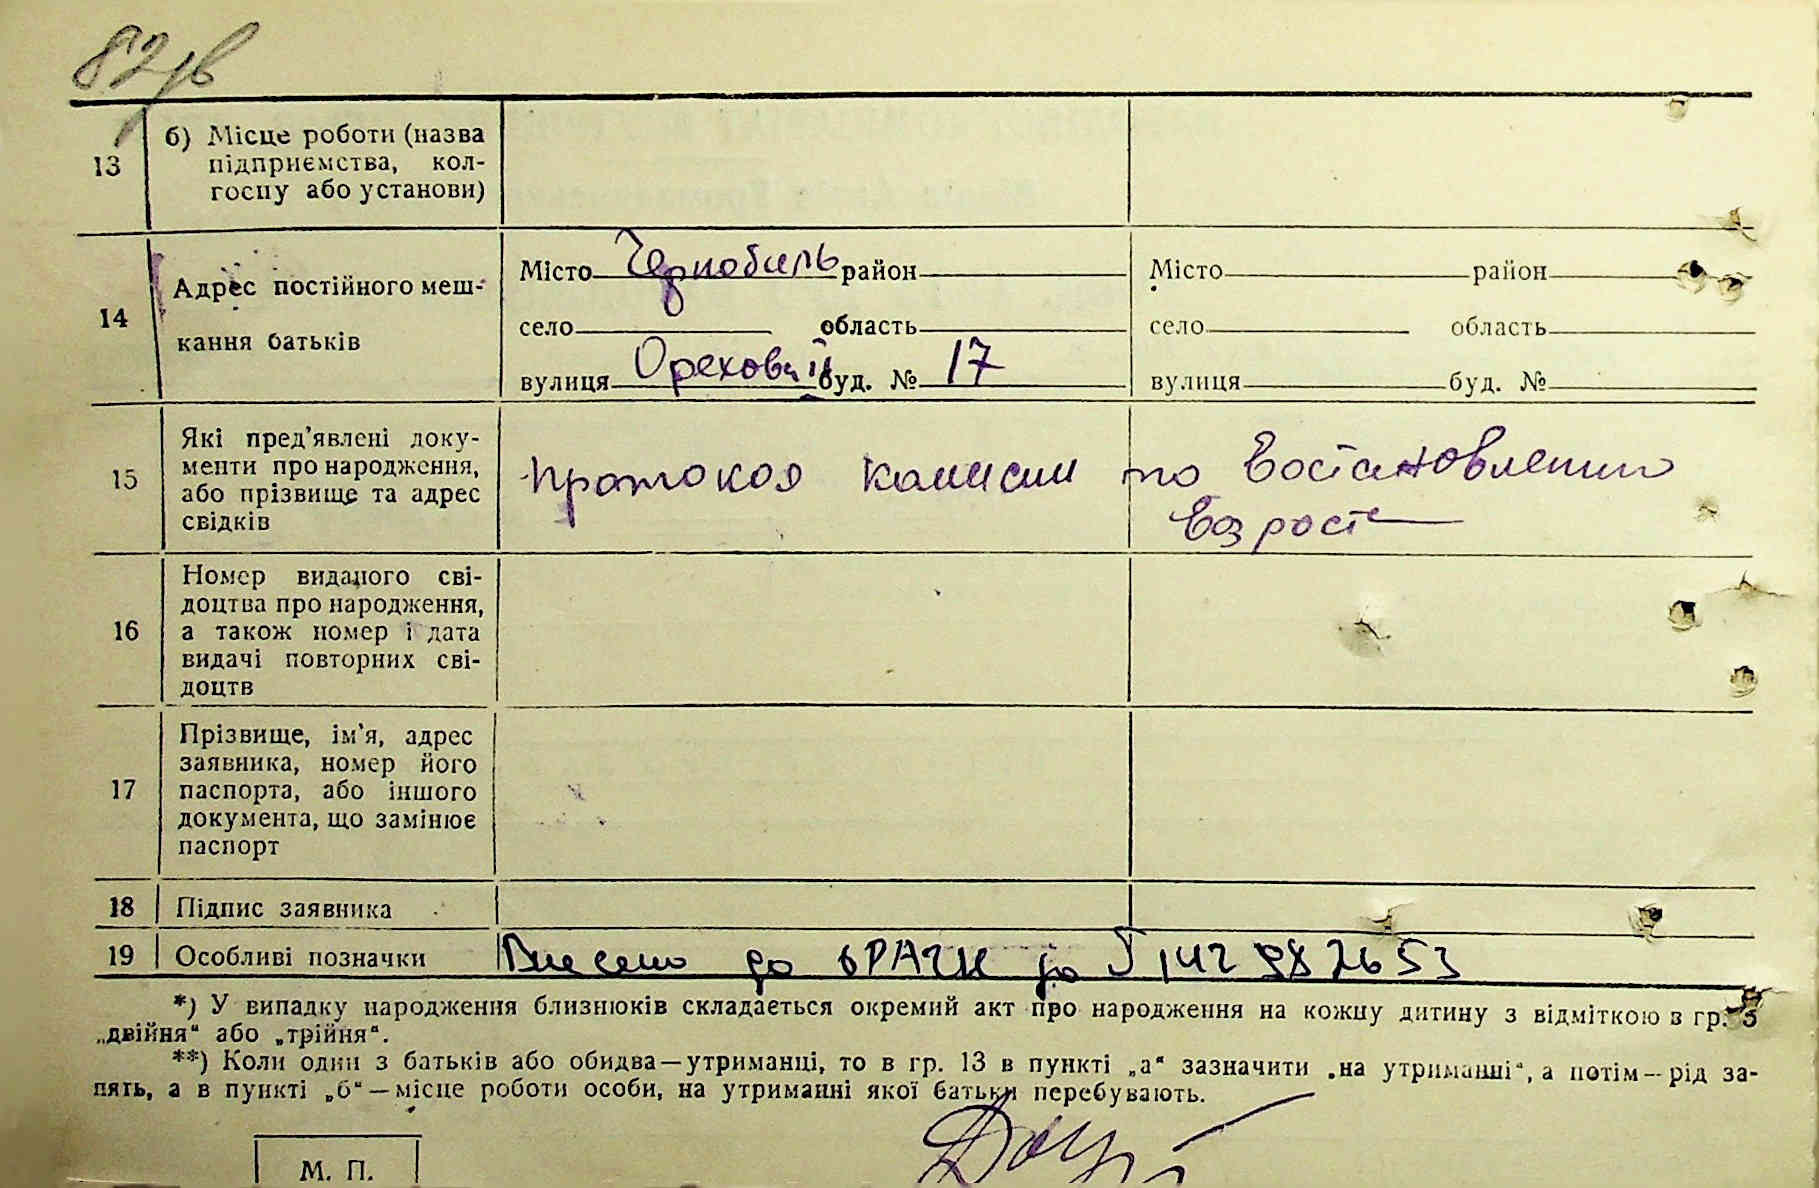 82зв
13 б) Місце роботи (назва
підприємства, кол-
госпу або установи)
14 Адрес постійного меш-
кання батьків
Місто Чернобиль район
село область
вулиця Ореховий буд. № 17
Місто район
село область
вулиця буд. №
15 Які пред'явлені доку-
менти про народження,
або прізвище та адрес
свідків
протокол комисии по востановлению
возраста
16 Номер виданого сві-
доцтва про народження,
а також номер і дата
видачі повторних сві-
доцтв
17 Прізвище, ім'я, адрес
заявника, номер його
паспорта, або іншого
документа, що замінює
паспорт
18 Підпис заявника
19 Особливі позначки Внесено до
*) У випадку народження близнюків складається окремий акт про народження на кожну дитину з відміткою в гр. 5
„двійня“ або „трійня“.
**) Коли один з батьків або обидва—утриманці, то в гр. 13 в пункті „а“ зазначити „на утриманні“, а потім—рід за-
нять, а в пункті „б“—місце роботи особи, на утриманні якої батьки перебувають.
М. П.